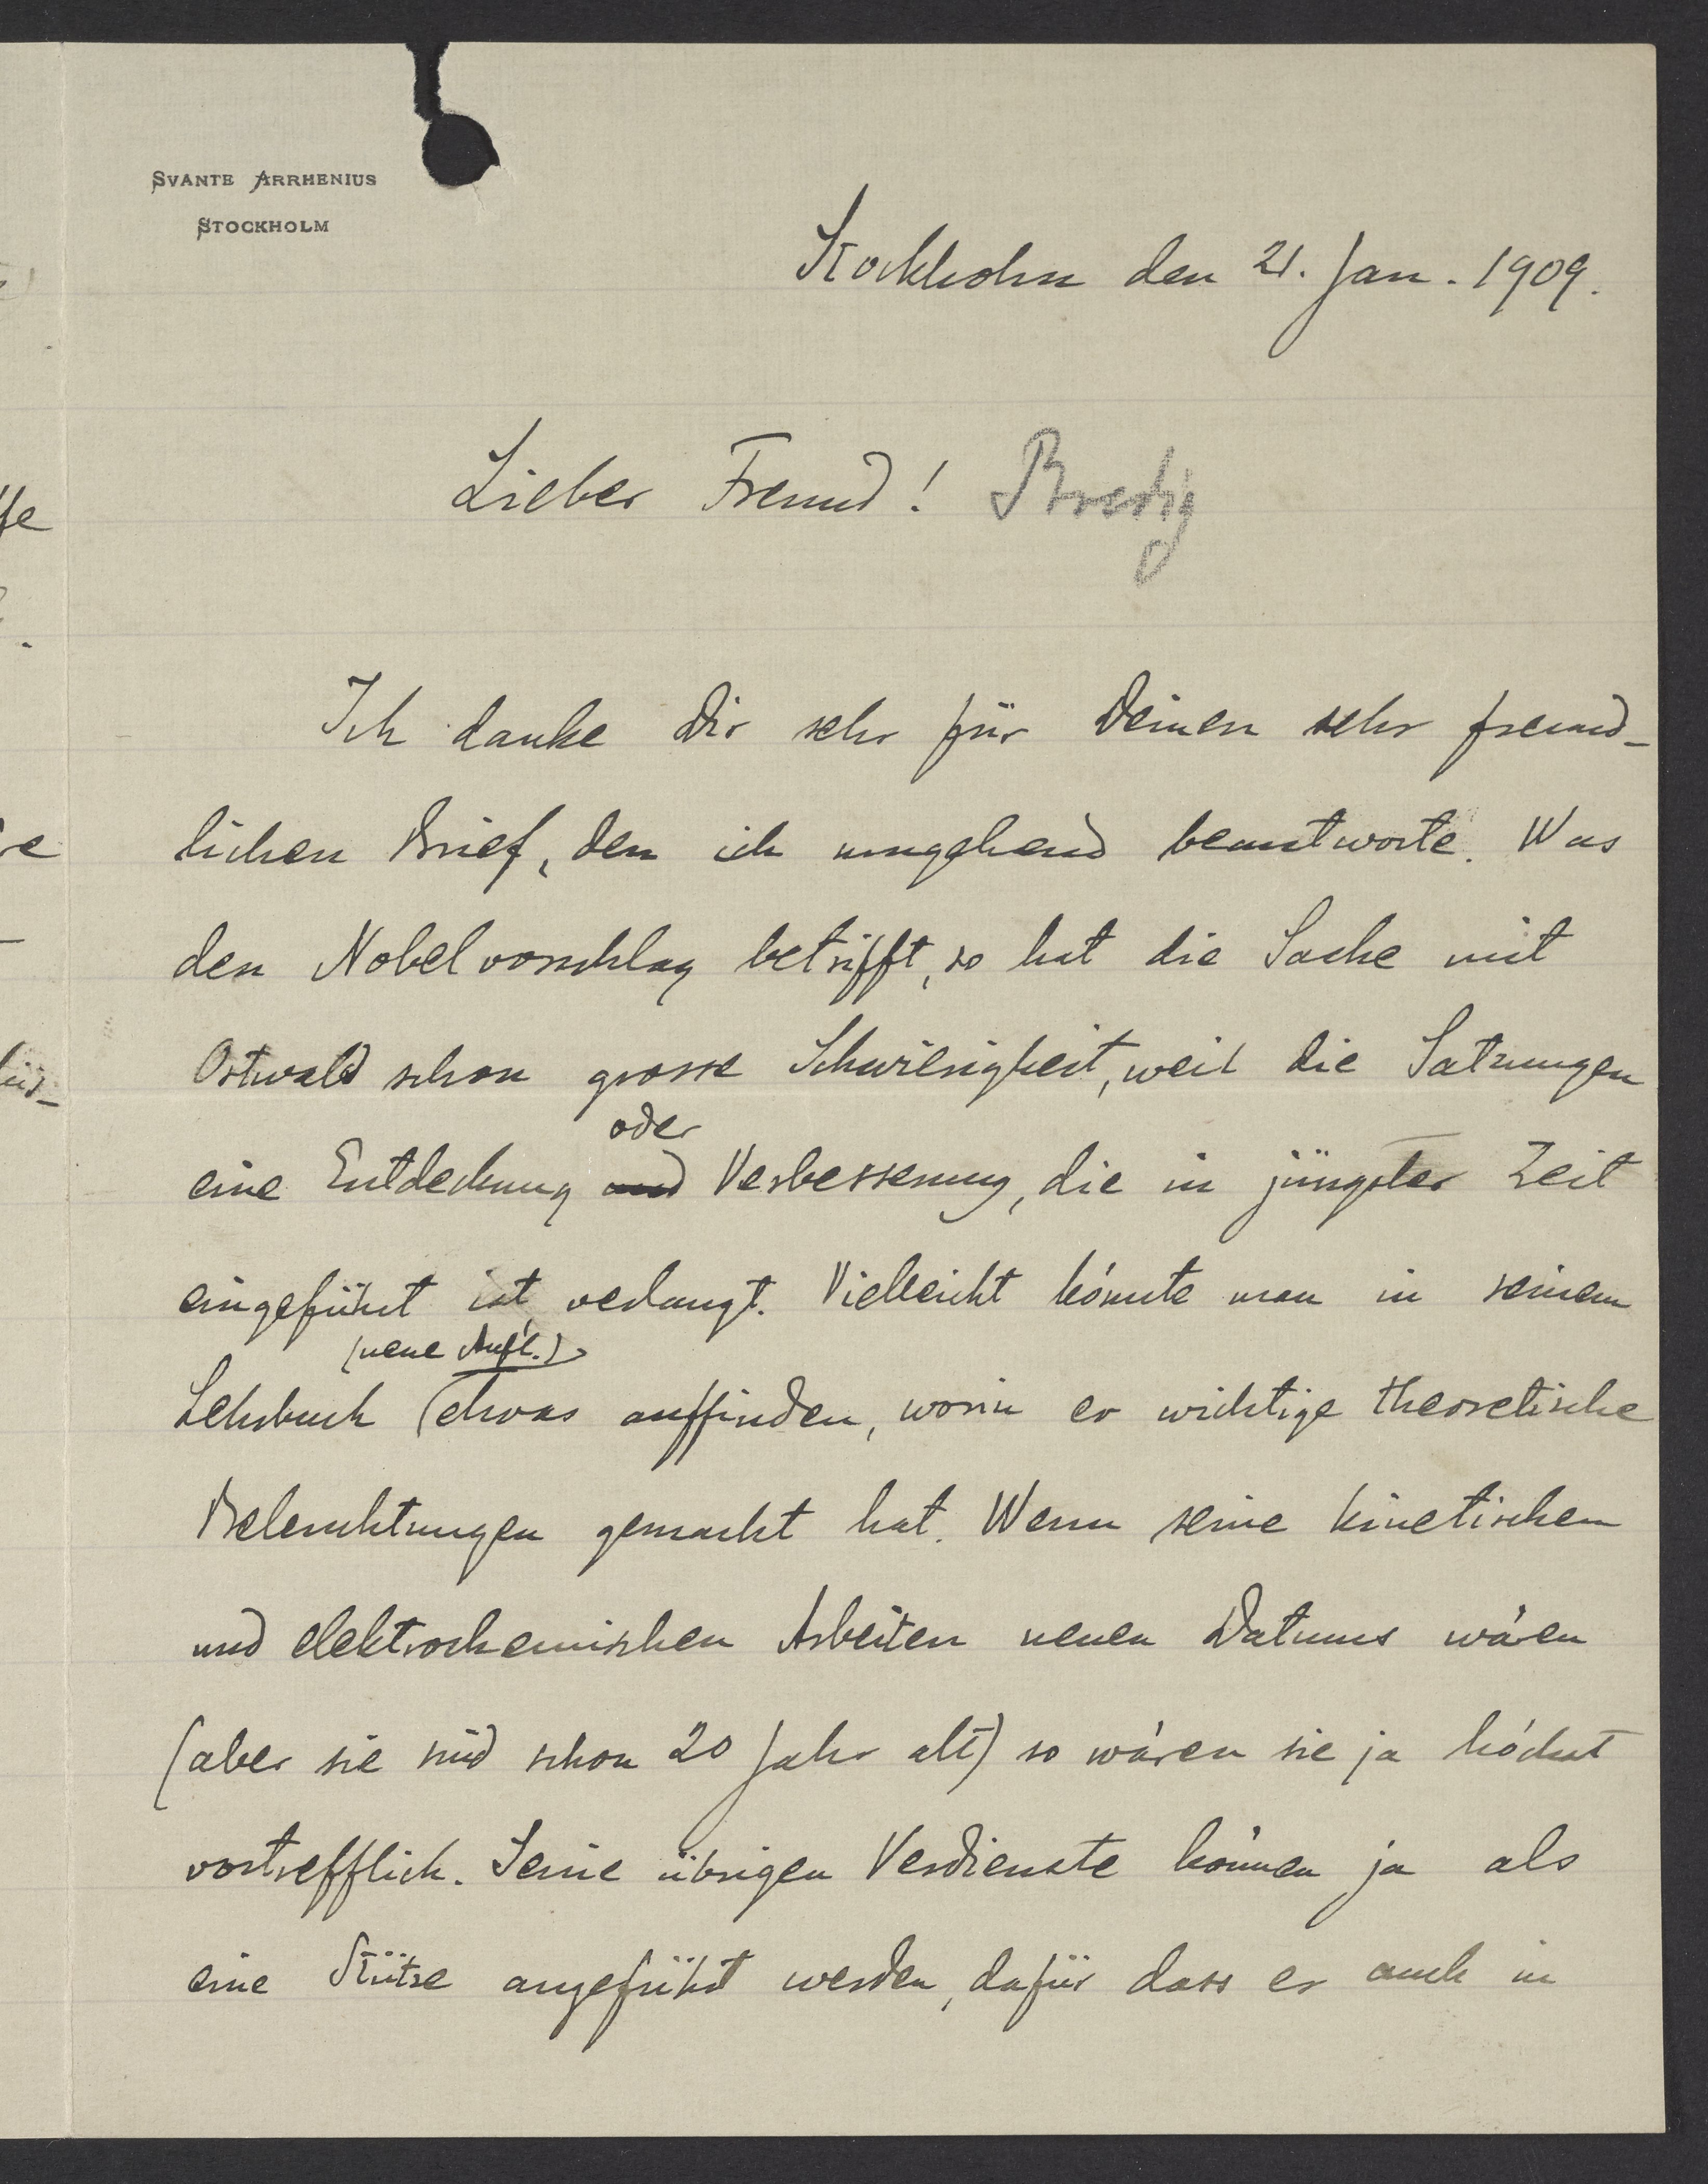 SVANTE ARRHENIUS
STOCKHOLM
Stockholm den 21. Jan. 1909.
Lieber Freund! Bredig
Ich danke Dir sehr für Deinen sehr freund-
lichen Brief, den ich umgehend beantworte. Was
den Nobelvorschlag betrifft, so hat die Sache mit
Ostwald schon grosse Schwierigkeit, weil die Satzungen
oder
eine Entdeckung und Verbesserung, die in jüngster Zeit
eingeführt ist, verlangt. Vielleicht könnte man in seinem
(neue Aufl.)
Lehrbuch etwas auffinden, worin er wichtige theoretische
Beleuchtungen gemacht hat. Wenn seine kinetischen
und elektrochemischen Arbeiten neuen Datums wären
(aber sie sind schon 20 Jahr alt) so wären sie ja höchst
vortrefflich. Seine übrigen Verdienste können ja als
eine Stütze angeführt werden, dafür dass er auch in